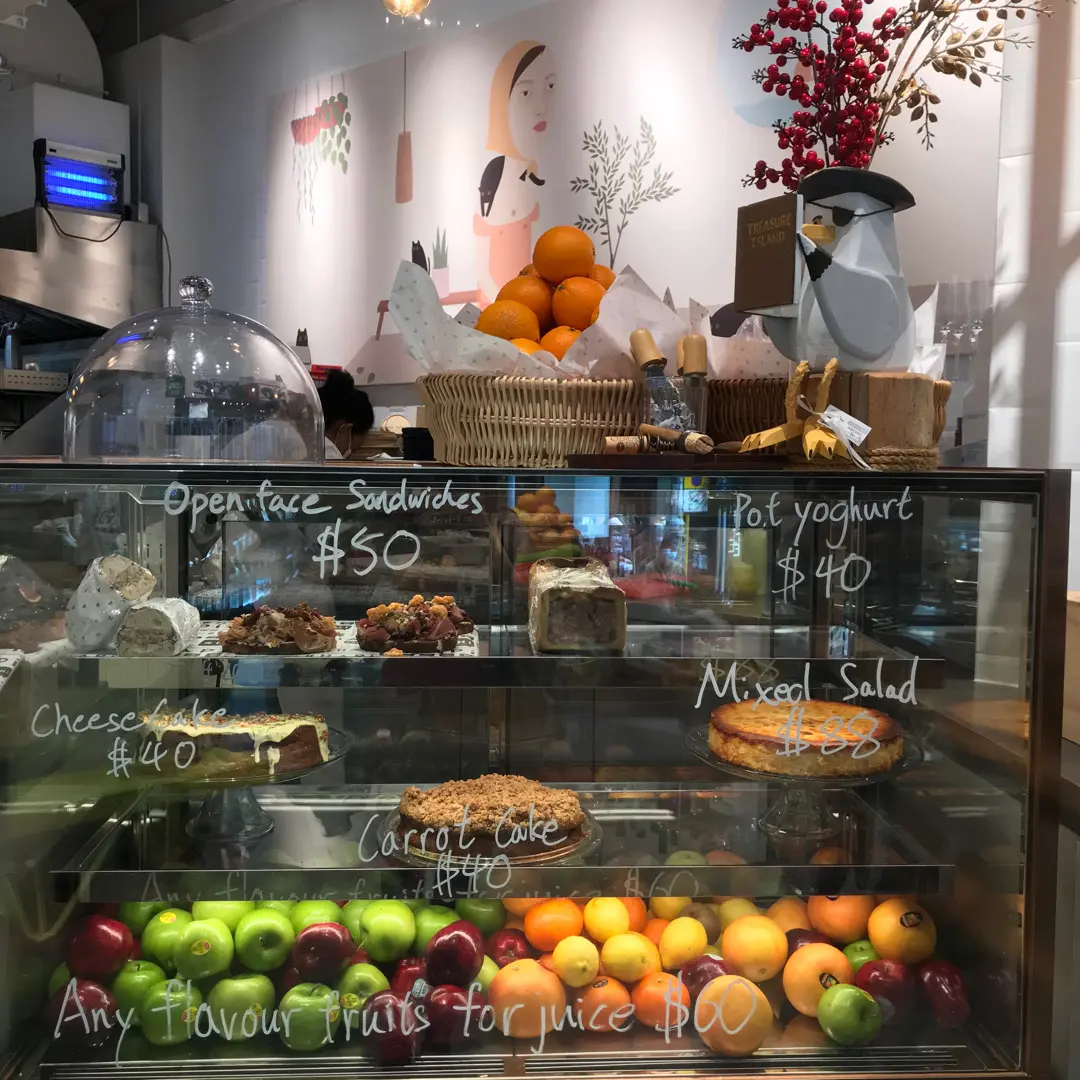 TREASURE
ISLAND
Open face Sandwiches
$50
Pot yoghurt
$40
Mixed Salad
$88
Cheese Cake
$40
Carrot Cake
$40
Any flavour fruits for juice $60